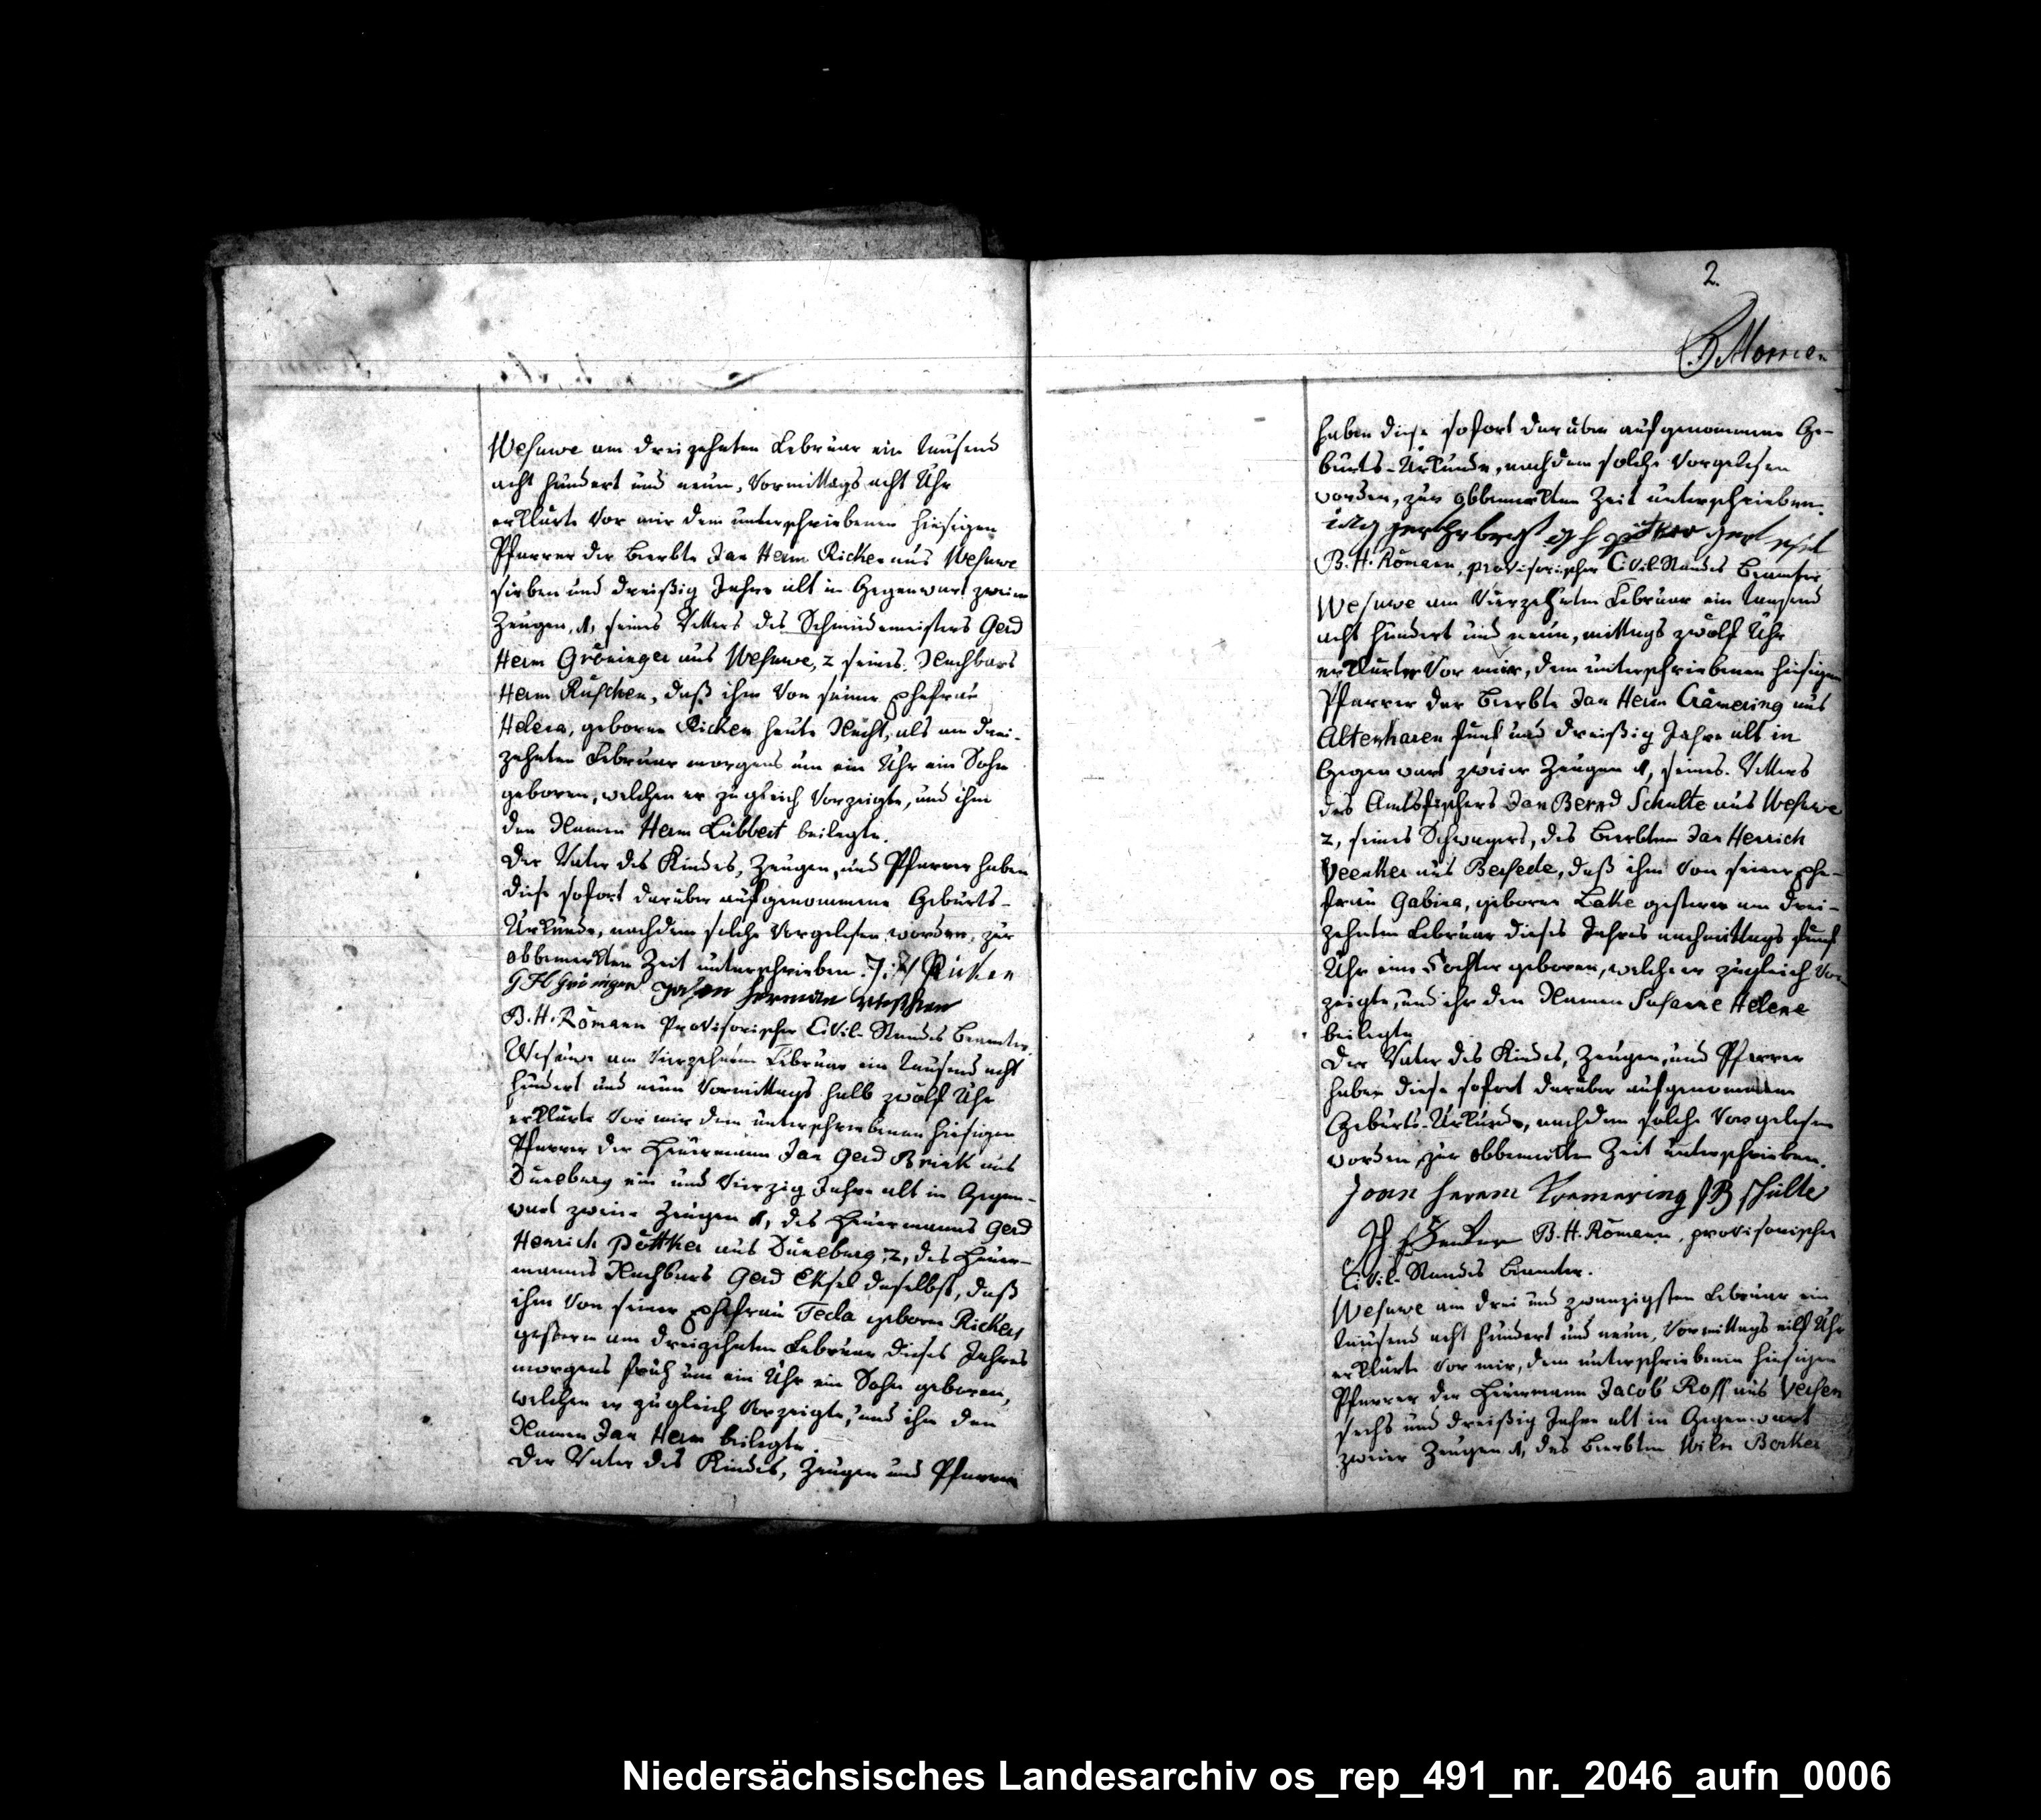 Wesuwe am dreizehnten Februar ein tausend
acht hundert und neun, Vormittags acht Uhr
erklärte vor mir dem unterschriebenen hiesigen
Pfarrer der Beerbte Jan Herm Ricken aus Wesuwe
sieben und dreißig Jahre alt in Gegenwart zweier
Zeugen, 1, seines Vetters des Schmiedemeisters Gerd
Herm Gröninger aus Wesuwe, 2 seines Nachbars
Herm Rüschen, daß ihm von seiner Ehefrau
Helena, geborne Ricken heute Nacht, als am drei-
zehnten Februar morgens um ein Uhr ein Sohn
geboren, welchen er zugleich vorzeigte, und ihm
den Namen Herm Lübbert beilegte.
Der Vater des Kindes, Zeugen, und Pfarrer haben
diese sofort darüber aufgenommene Geburts-
Urkunde, nachdem solche vorgelesen worden, zur
obbemerkten Zeit unterschrieben. J. H Ricken
G H Gröninger Johan herman rüschen
B. H. Römann Provisorischer Civil-Standes Beamter.
Wesuwe am vierzehnten Februar ein tausend acht
hundert und neun Vormittags halb zwölf Uhr
erklärte vor mir dem unterschriebenen hiesigen
Pfarrer der Heuermann Jan Gerd Brink aus
Duneburg ein und vierzig Jahre alt in Gegen-
wart zweier Zeugen 1, des Heuermanns Gerd
Henrich Pöttker aus Duneburg, 2, des Heuer-
manns Nachbars Gerd Eksel daselbst, daß
ihm von seiner Ehefrau Tecla geborne Rickers
gestern am dreizehnten Februar dieses Jahres
morgens früh um ein Uhr ein Sohn geboren,
welchen er zugleich vorzeigte, und ihm den
Namen Jan Herm beilegte.
Der Vater des Kindes, Zeugen und Pfarrer
2.
B Morrien
haben diese sofort darüber aufgenommene Ge-
burts-Urkunde, nachdem solche vorgelesen
worden, zur obbemerkten Zeit unterschrieben.
B. H. Römann, provisorischer Civil-Standes Beamter
Wesuwe am vierzehnten Februar ein tausend
acht hundert und neun, mittags zwölf Uhr
erklärte vor mir, dem unterschriebenen hiesigen
Pfarrer der Beerbte Jan Herm Cramering aus
Altenharen fünf und dreißig Jahre alt in
Gegenwart zweier Zeugen 1, seines Vetters
des Amtsfischers Jan Bernd Schulte aus Wesuwe
2, seines Schwagers, des Beerbten Jan Henrich
Veenker aus Bersede, daß ihm von seiner Ehe-
frau Gabina, geborne Lake gestern am drei-
zehnten Februar dieses Jahres nachmittags fünf
Uhr eine Tochter geboren, welche er zugleich vor-
zeigte, und ihr den Namen Susanne Helene
beilegte
Der Vater des Kindes, Zeugen, und Pfarrer
haben diese sofort darüber aufgenommene
Geburts-Urkunde, nachdem solche vorgelesen
worden, zur obbemerkten Zeit unterschrieben.
Joan herem Kremering J B schulte
B. H. Römann, provisorischer
Civil-Standes Beamter.
Wesuwe am drei und zwanzigsten Februar ein
tausend acht hundert und neun, Vormittags eilf Uhr
erklärte vor mir, dem unterschriebenen hiesigen
Pfarrer der Heuermann Jacob Ross aus Versen
sechs und dreißig Jahre alt in Gegenwart
zweier Zeugen 1, des Beerbten Wilm Berker
Niedersächsisches Landesarchiv os_rep_491_nr._2046_aufn_0006